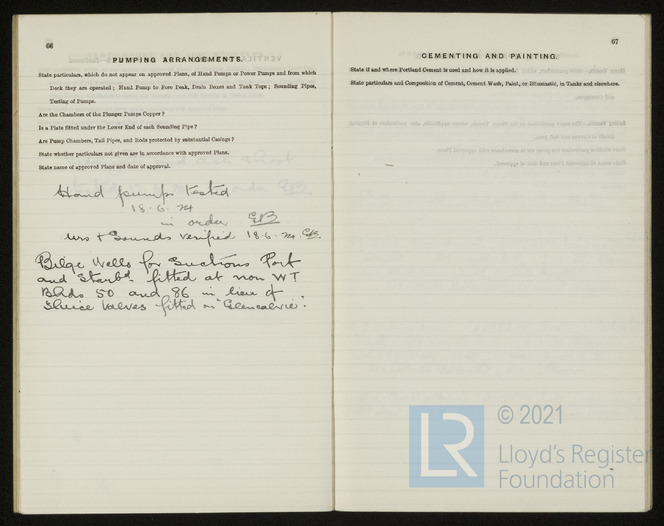 66
PUMPING ARRANGEMENTS.
State particulars, which do not appear on approved Plans, of Hand Pumps or Power Pumps and from which
Deck they are operated; Hand Pump to Fore Peak, Drain Boxes and Tank Tops; Sounding Pipes,
Testing of Pumps.
Are the Chambers of the Plunger Pumps Copper?
Is a Plate fitted under the Lower End of each Sounding Pipe?
Are Pump Chambers, Tail Pipes, and Rods protected by substantial Casings?
State whether particulars not given are in accordance with approved Plans.
State name of approved Plans and date of approval.
Hand pumps tested
18·6·24
in order GB
& Sounds verified 18·6·24. GB.
Bilge Wells for Suctions Port
and Starbd fitted at non WT
Bhds 50 and 86 in lieu of
Sluice Valves fitted on "Glencalvie".
67
CEMENTING AND PAINTING.
State if and where Portland Cement is used and how it is applied.
State particulars and Composition of Cement, Cement Wash, Paint, or Bitumastic, in Tanks and elsewhere.
LR
© 2021
Lloyd's Register
Foundation